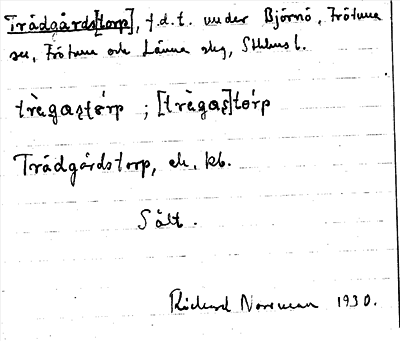 Trädgårds[torp], f.d.t. under Björnö, Frötuna
sn, Frötuna och Länna skg, Sthlms l.
trègaʂtórp ; [trègaʂ]tórp
Trädgårdstorp, ek. kb.
Sålt.
Rickard Norrman 1930.